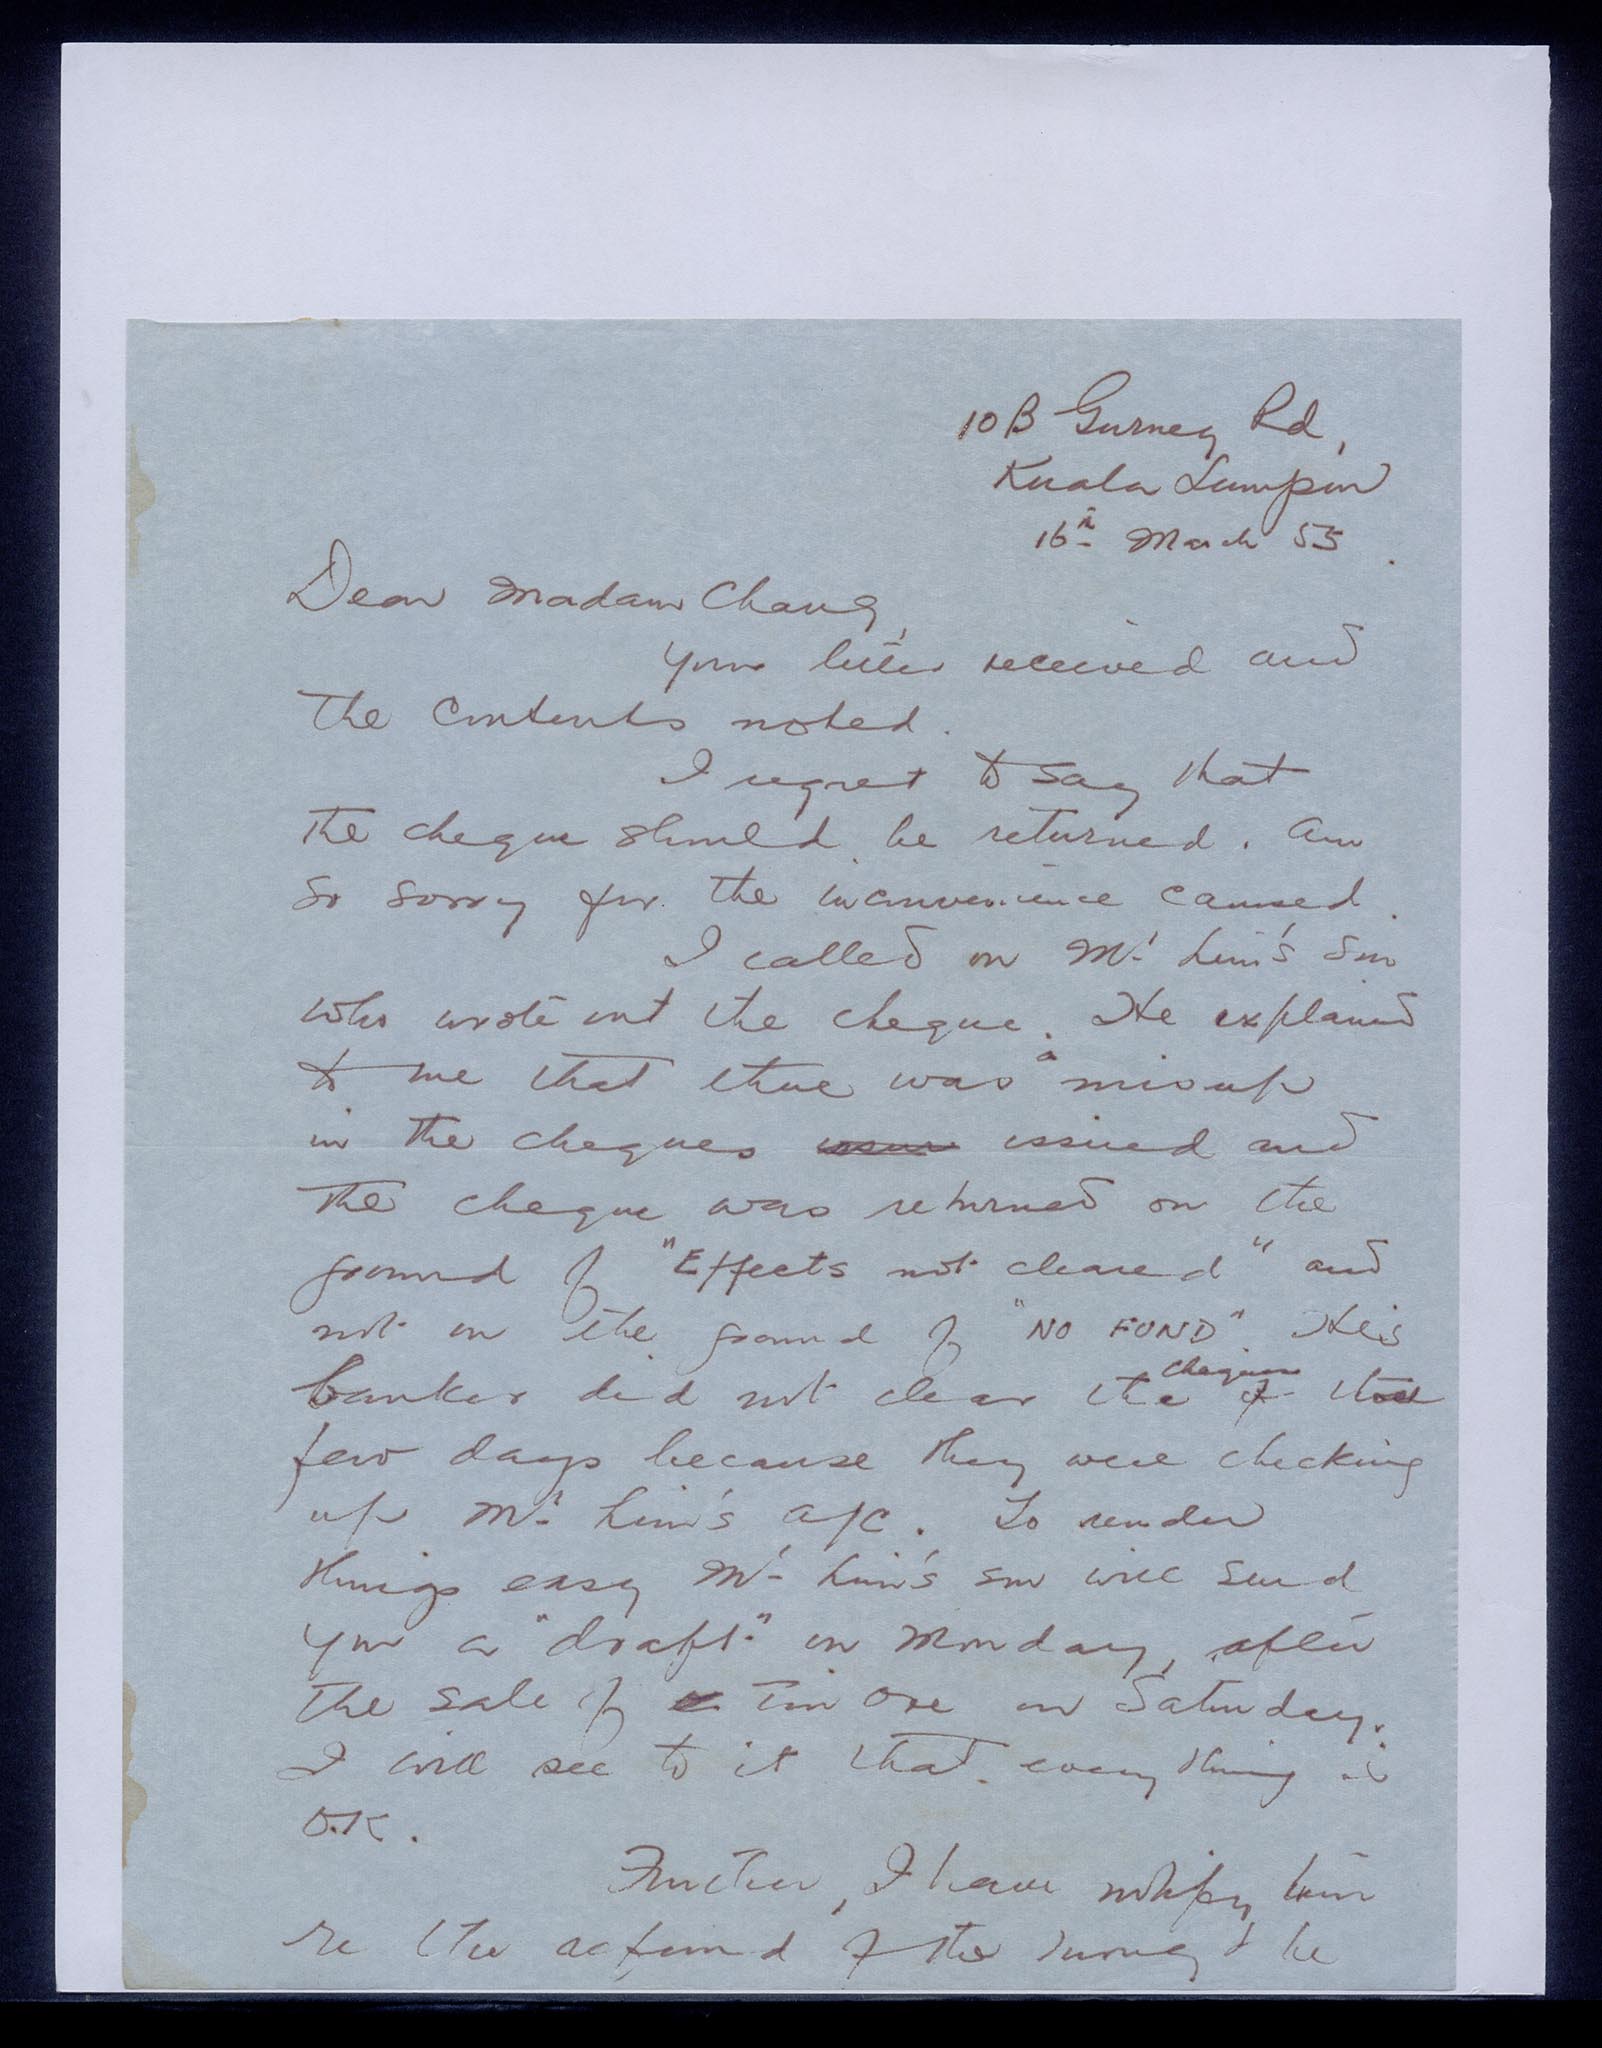 10B Gurney Rd,
Kuala Lumpur
16th March 55.
Dear Madam Chang,
Your letter received and
the contents noted.
I regret to say that
the cheque should be returned. Am
so sorry for the inconvenience caused.
I called on Mr. Lim's son
who wrote out the cheque. He explained
to me that there was a mixup
in the cheques issued and
the cheque was returned on the
ground of "Effects not cleared" and
not on the ground of "NO FUND" His
banker did not clear the cheques for
few days because they were checking
up Mr. Lim's a/c. To render
things easy Mr. Lim's son will send
you a "draft" on Monday, after
the sale of Tin Ore on Saturday.
I will see to it that everything is
O.K.
Further, I have notify him
re the refund of the money & he